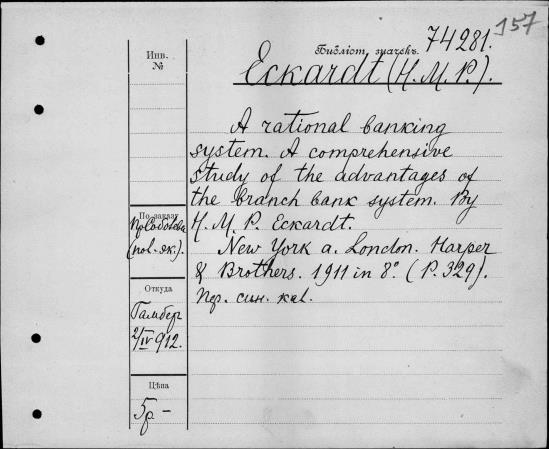 157
Библіот. значекъ. 74281.
Инв.
№
Eckardt (H. M. P.).
A rational banking
system. A comprehensive
study of the advantages of
the branch bank system. By
H. M. P. Eckardt.
New York a. London. Harper
& Brothers. 1911 in 8°. (P. 329).
Пер. син. кал.
По заказу
(pol.-эк.).
Откуда
Гамбер
2/IV 912.
Цѣна
5р -